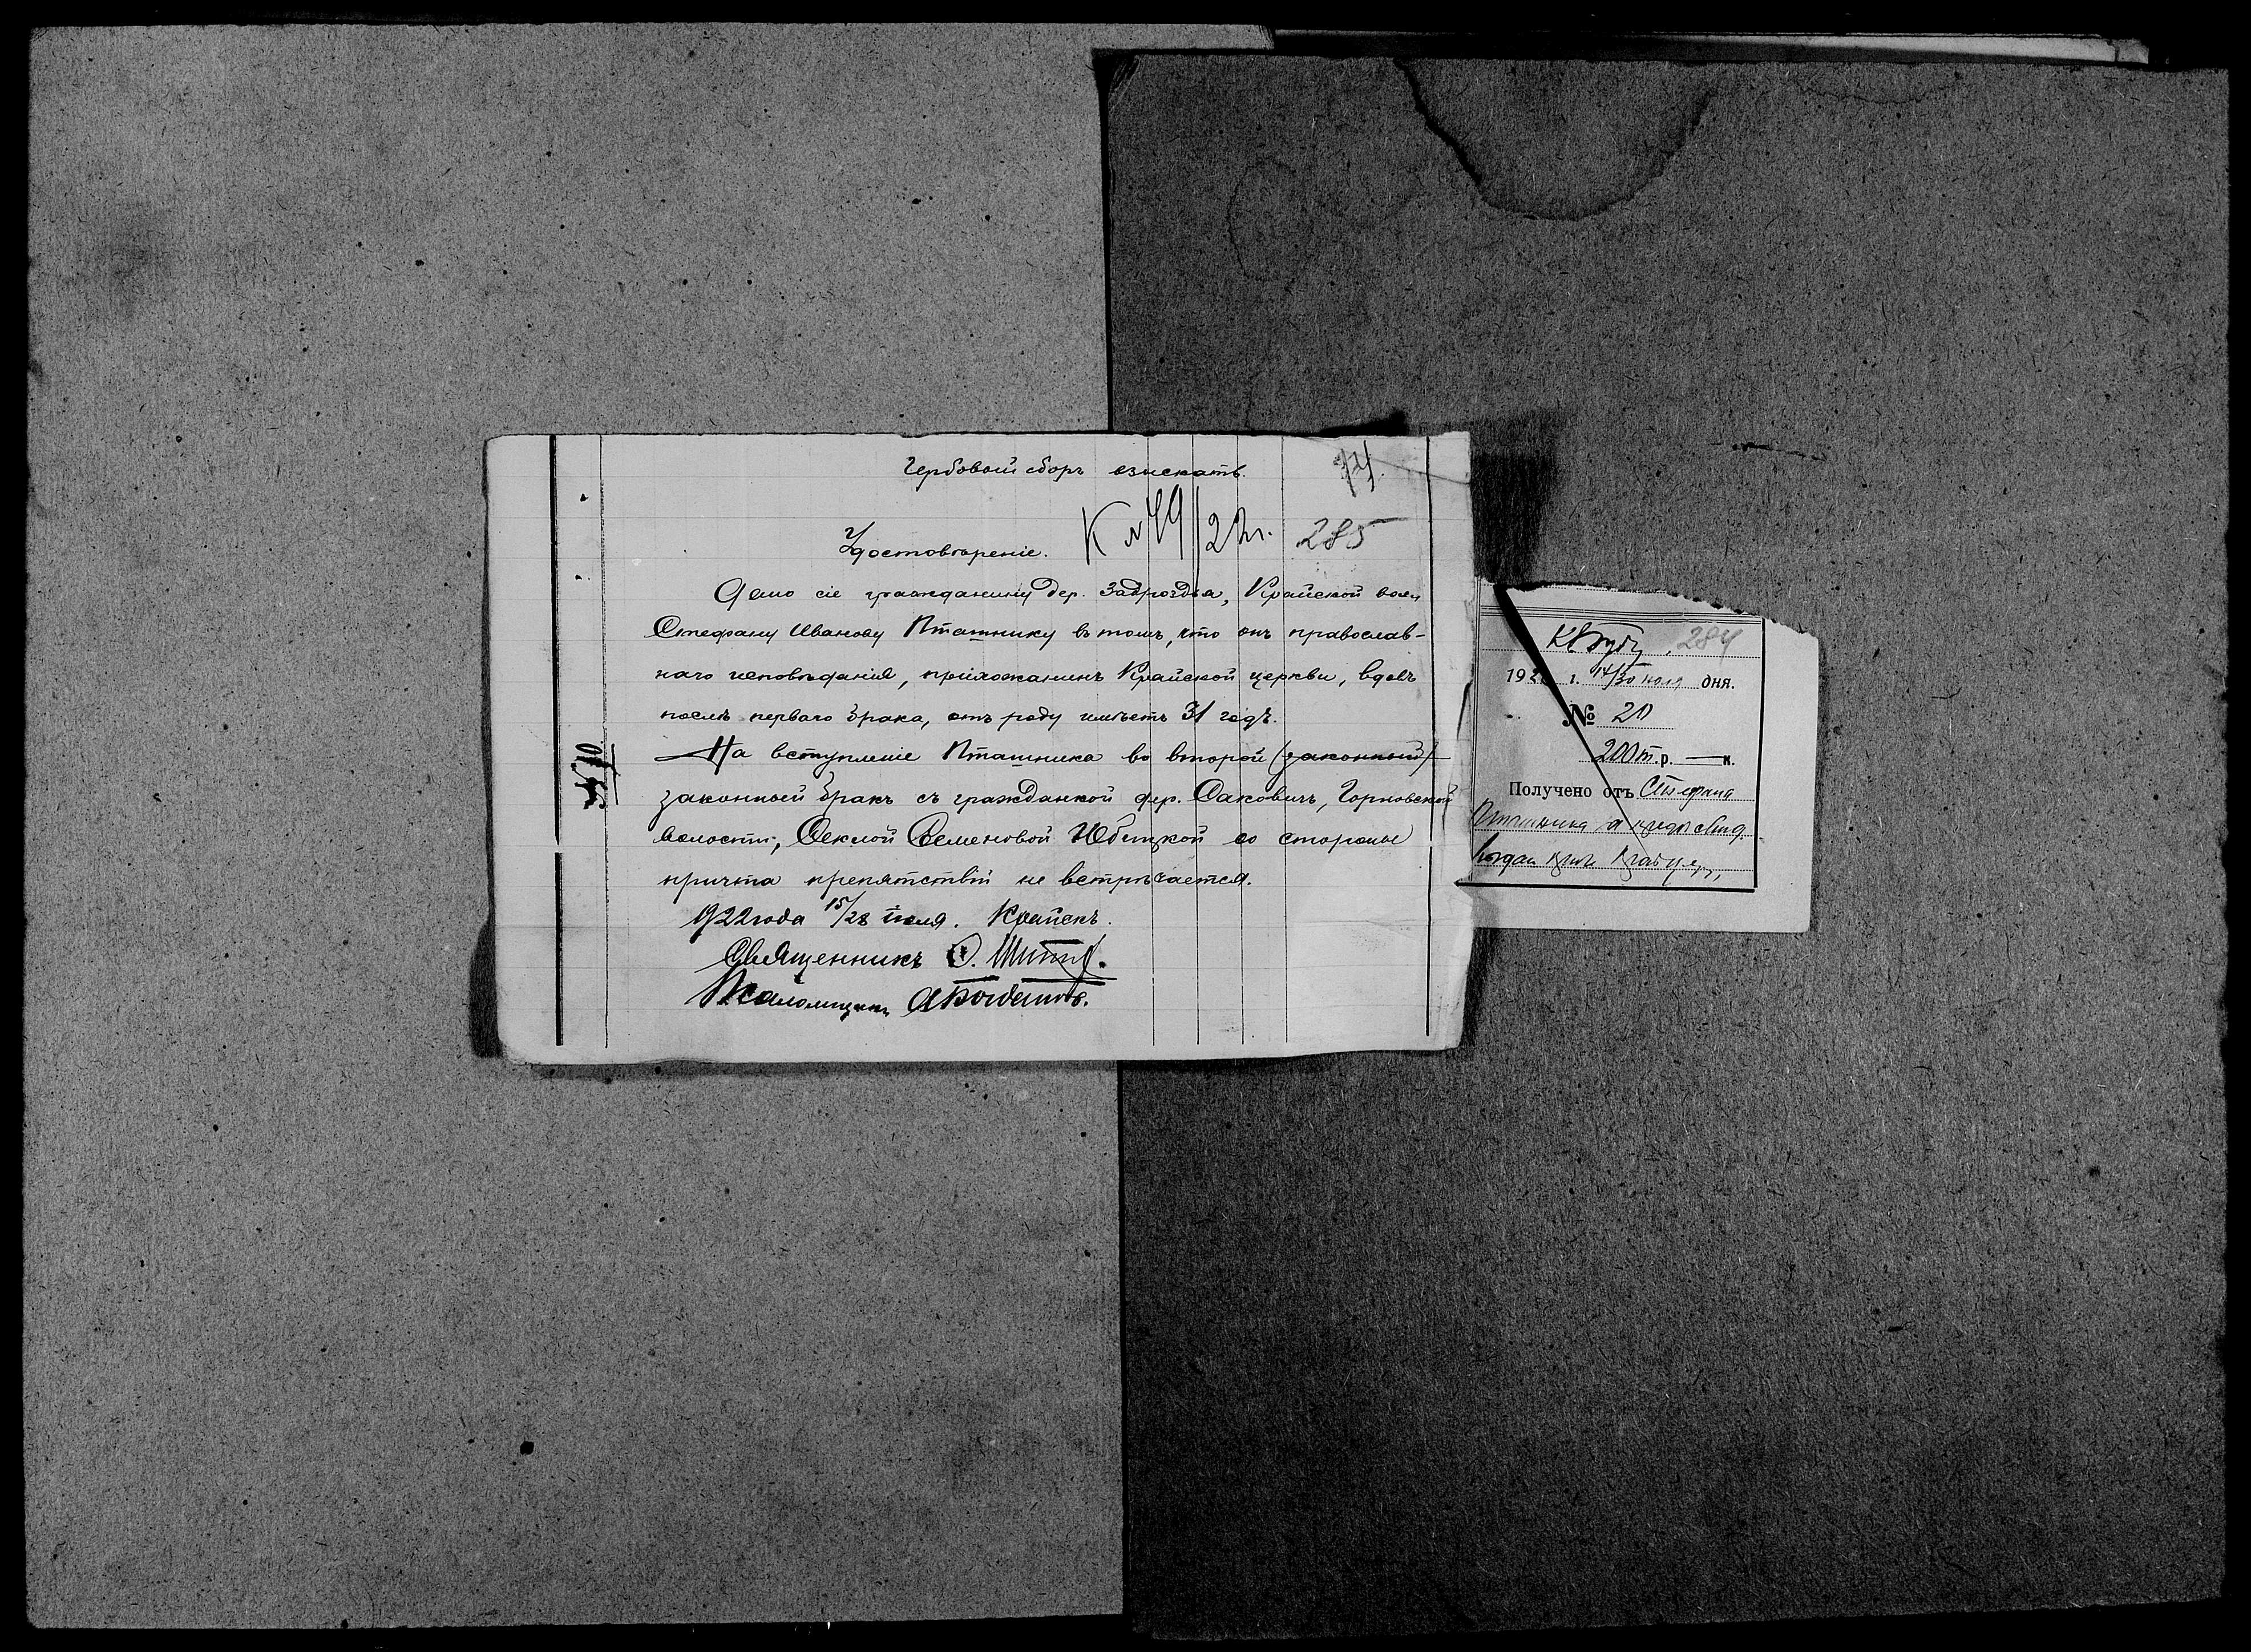 Гербовый сборъ взыскать.
74.
К №79/22 г. 285
Удостовѣреніе.
Дано сіе гражданину дер. Задроздья, Крайской вол.
Стефану Иванову Пташнику въ томъ, что онъ православ-
наго исповѣданія, прихожанинъ Крайской церкви, вдовъ
послѣ перваго брака, отъ роду имѣетъ 31 годъ.
На вступленіе Пташника во второй (законный)
законный бракъ съ гражданкой дер. Саковичъ,
волости, Феклой Семеновой со стороны
причта препятствій не встрѣчается.
1922 года 15/28 іюля. Крайскъ.
Священникъ
Псаломщикъ А Богдановъ.
№ 110
284
192 г. дня.
№ 20
200 т. р. — к.
Получено отъ Стефана
Пташника